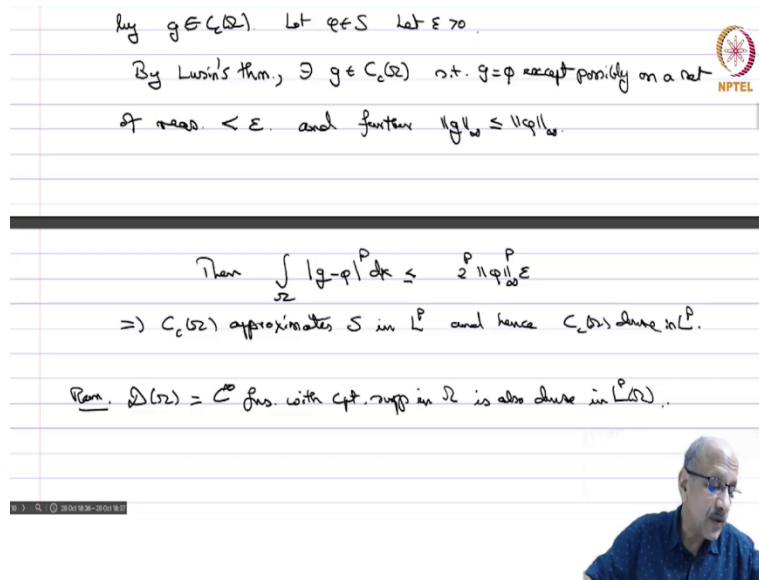 by g∈C_c(Ω). Let φ∈S Let ε>0.
By Lusin's thm., ∃ g∈C_c(Ω) s.t. g=φ except possibly on a set
NPTEL
of meas. < ε. and further ‖g‖_∞ ≤ ‖φ‖_∞.
Then ∫_Ω |g-φ|^p dx ≤ 2^p ‖φ‖_∞^p ε
⇒ C_c(Ω) approximates S in L^p and hence C_c(Ω) dense in L^p.
Rem. D(Ω) = C^∞ fns. with cpt. supp in Ω is also dense in L^p(Ω).
28 Oct 18:36 - 28 Oct 18:37